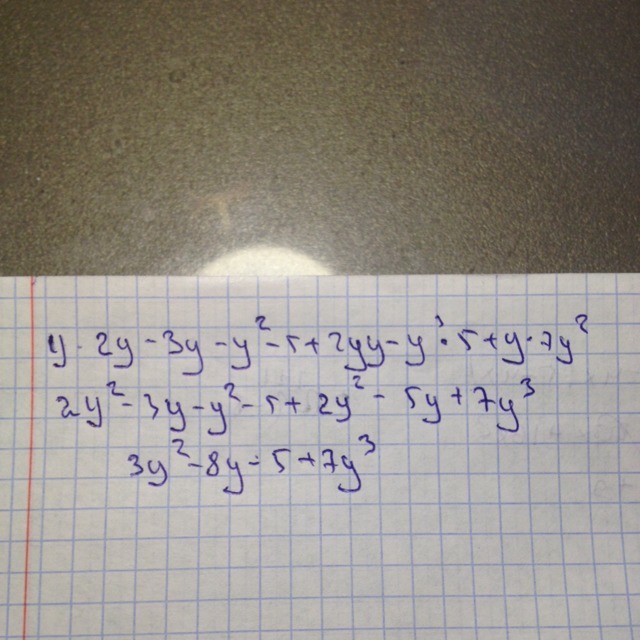 y · 2y - 3y - y² - 5 + 2yy - y · 5 + y · 7y²
2y² - 3y - y² - 5 + 2y² - 5y + 7y³
3y² - 8y - 5 + 7y³